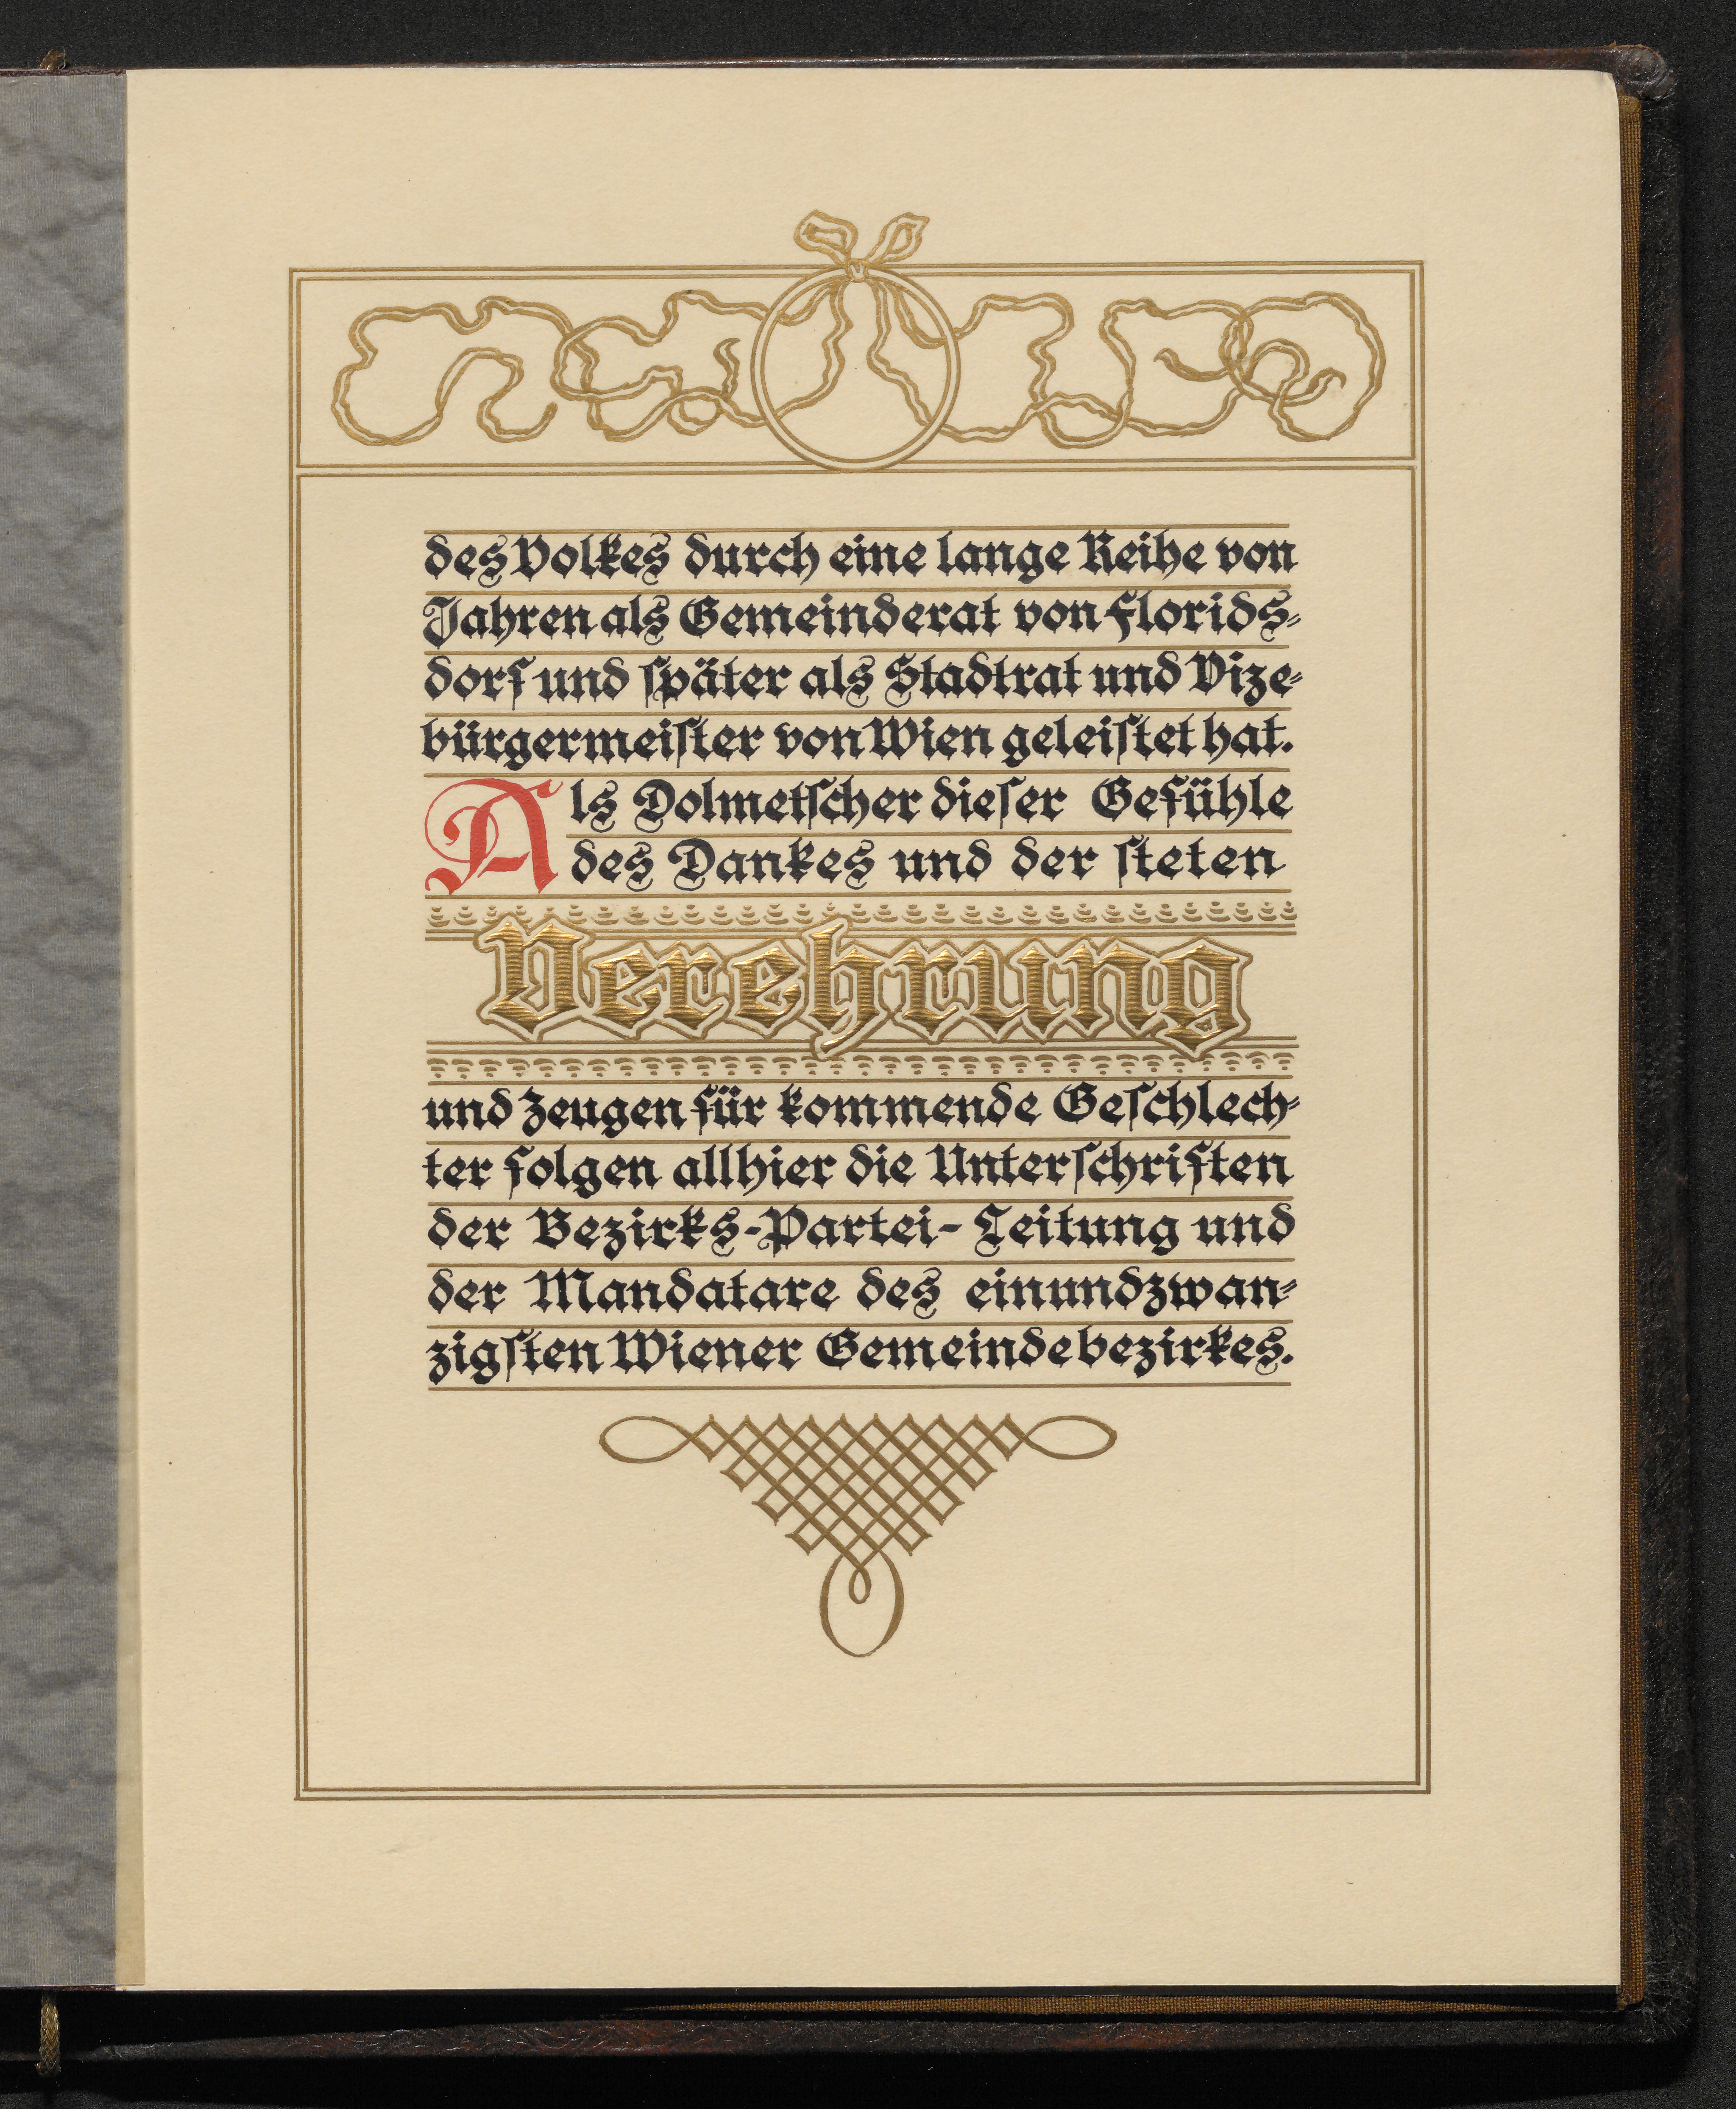 des Volkes durch eine lange Reihe von
Jahren als Gemeinderat von Florids-
dorf und ſpäter als Stadtrat und Vize-
bürgermeiſter von Wien geleiſtet hat.
Als Dolmetſcher dieſer Gefühle
des Dankes und der ſteten
Verehrung
und Zeugen für kommende Geſchlech-
ter folgen allhier die Unterſchriften
der Bezirks-Partei-Leitung und
der Mandatare des einundzwan-
zigſten Wiener Gemeindebezirkes.